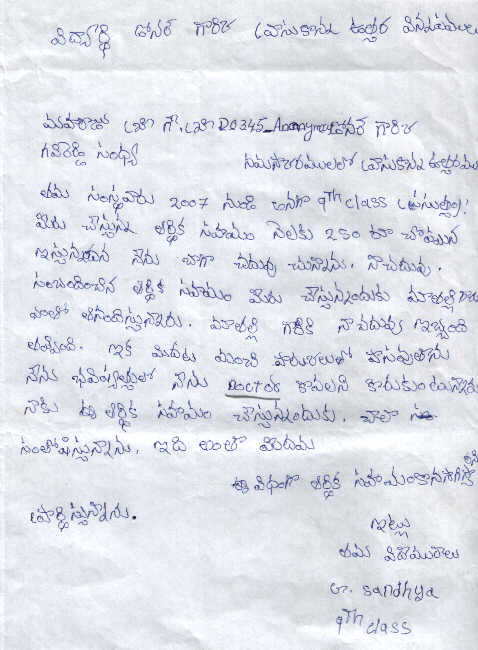 విద్యార్థి డోనర్ గారికి వ్రాసుకొన్న ఉత్తర విన్నపములు
మహారాజ శ్రీ గౌ. శ్రీ D0345_Anonymous డోనర్ గారికి
గవిరెడ్డి సంధ్య సమస్కారములలో వ్రాసుకొన్న ఉత్తరము
తమ సంస్థవారు 2007 నుండి అనగా 9th class (ప్రస్తుతం)!
మీరు చేస్తున్న ఆర్థిక సహాయం నెలకు 250 రూ చొప్పున
ఇస్తున్నందున నేను బాగా చదువు చున్నాను. నాచదువు.
సంబందించిన ఆర్థిక సహాయం మీరు చేస్తున్నందుకు మాతల్లి గారు
ఎంతో ఆనందిస్తున్నారు. మాతల్లి గారికి నాచదువు ఇబ్బంది
తప్పింది. ఇక మీదట మంచి మార్కులతో పాసవుతాను
నేను భవిష్యత్తులో నేను Doctor కావలని కోరుకుంటున్నాను
నాకు ఈ ఆర్థిక సహాయం చేస్తున్నందుకు. చాలా
సంతోషిస్తున్నాను. ఇది అంతా మీదయ
ఈ విధంగా ఆర్థిక సహాయం
ప్రార్థిస్తున్నాను.
ఇట్లు
తమ విధేయురాలు
G. Sandhya
9th class